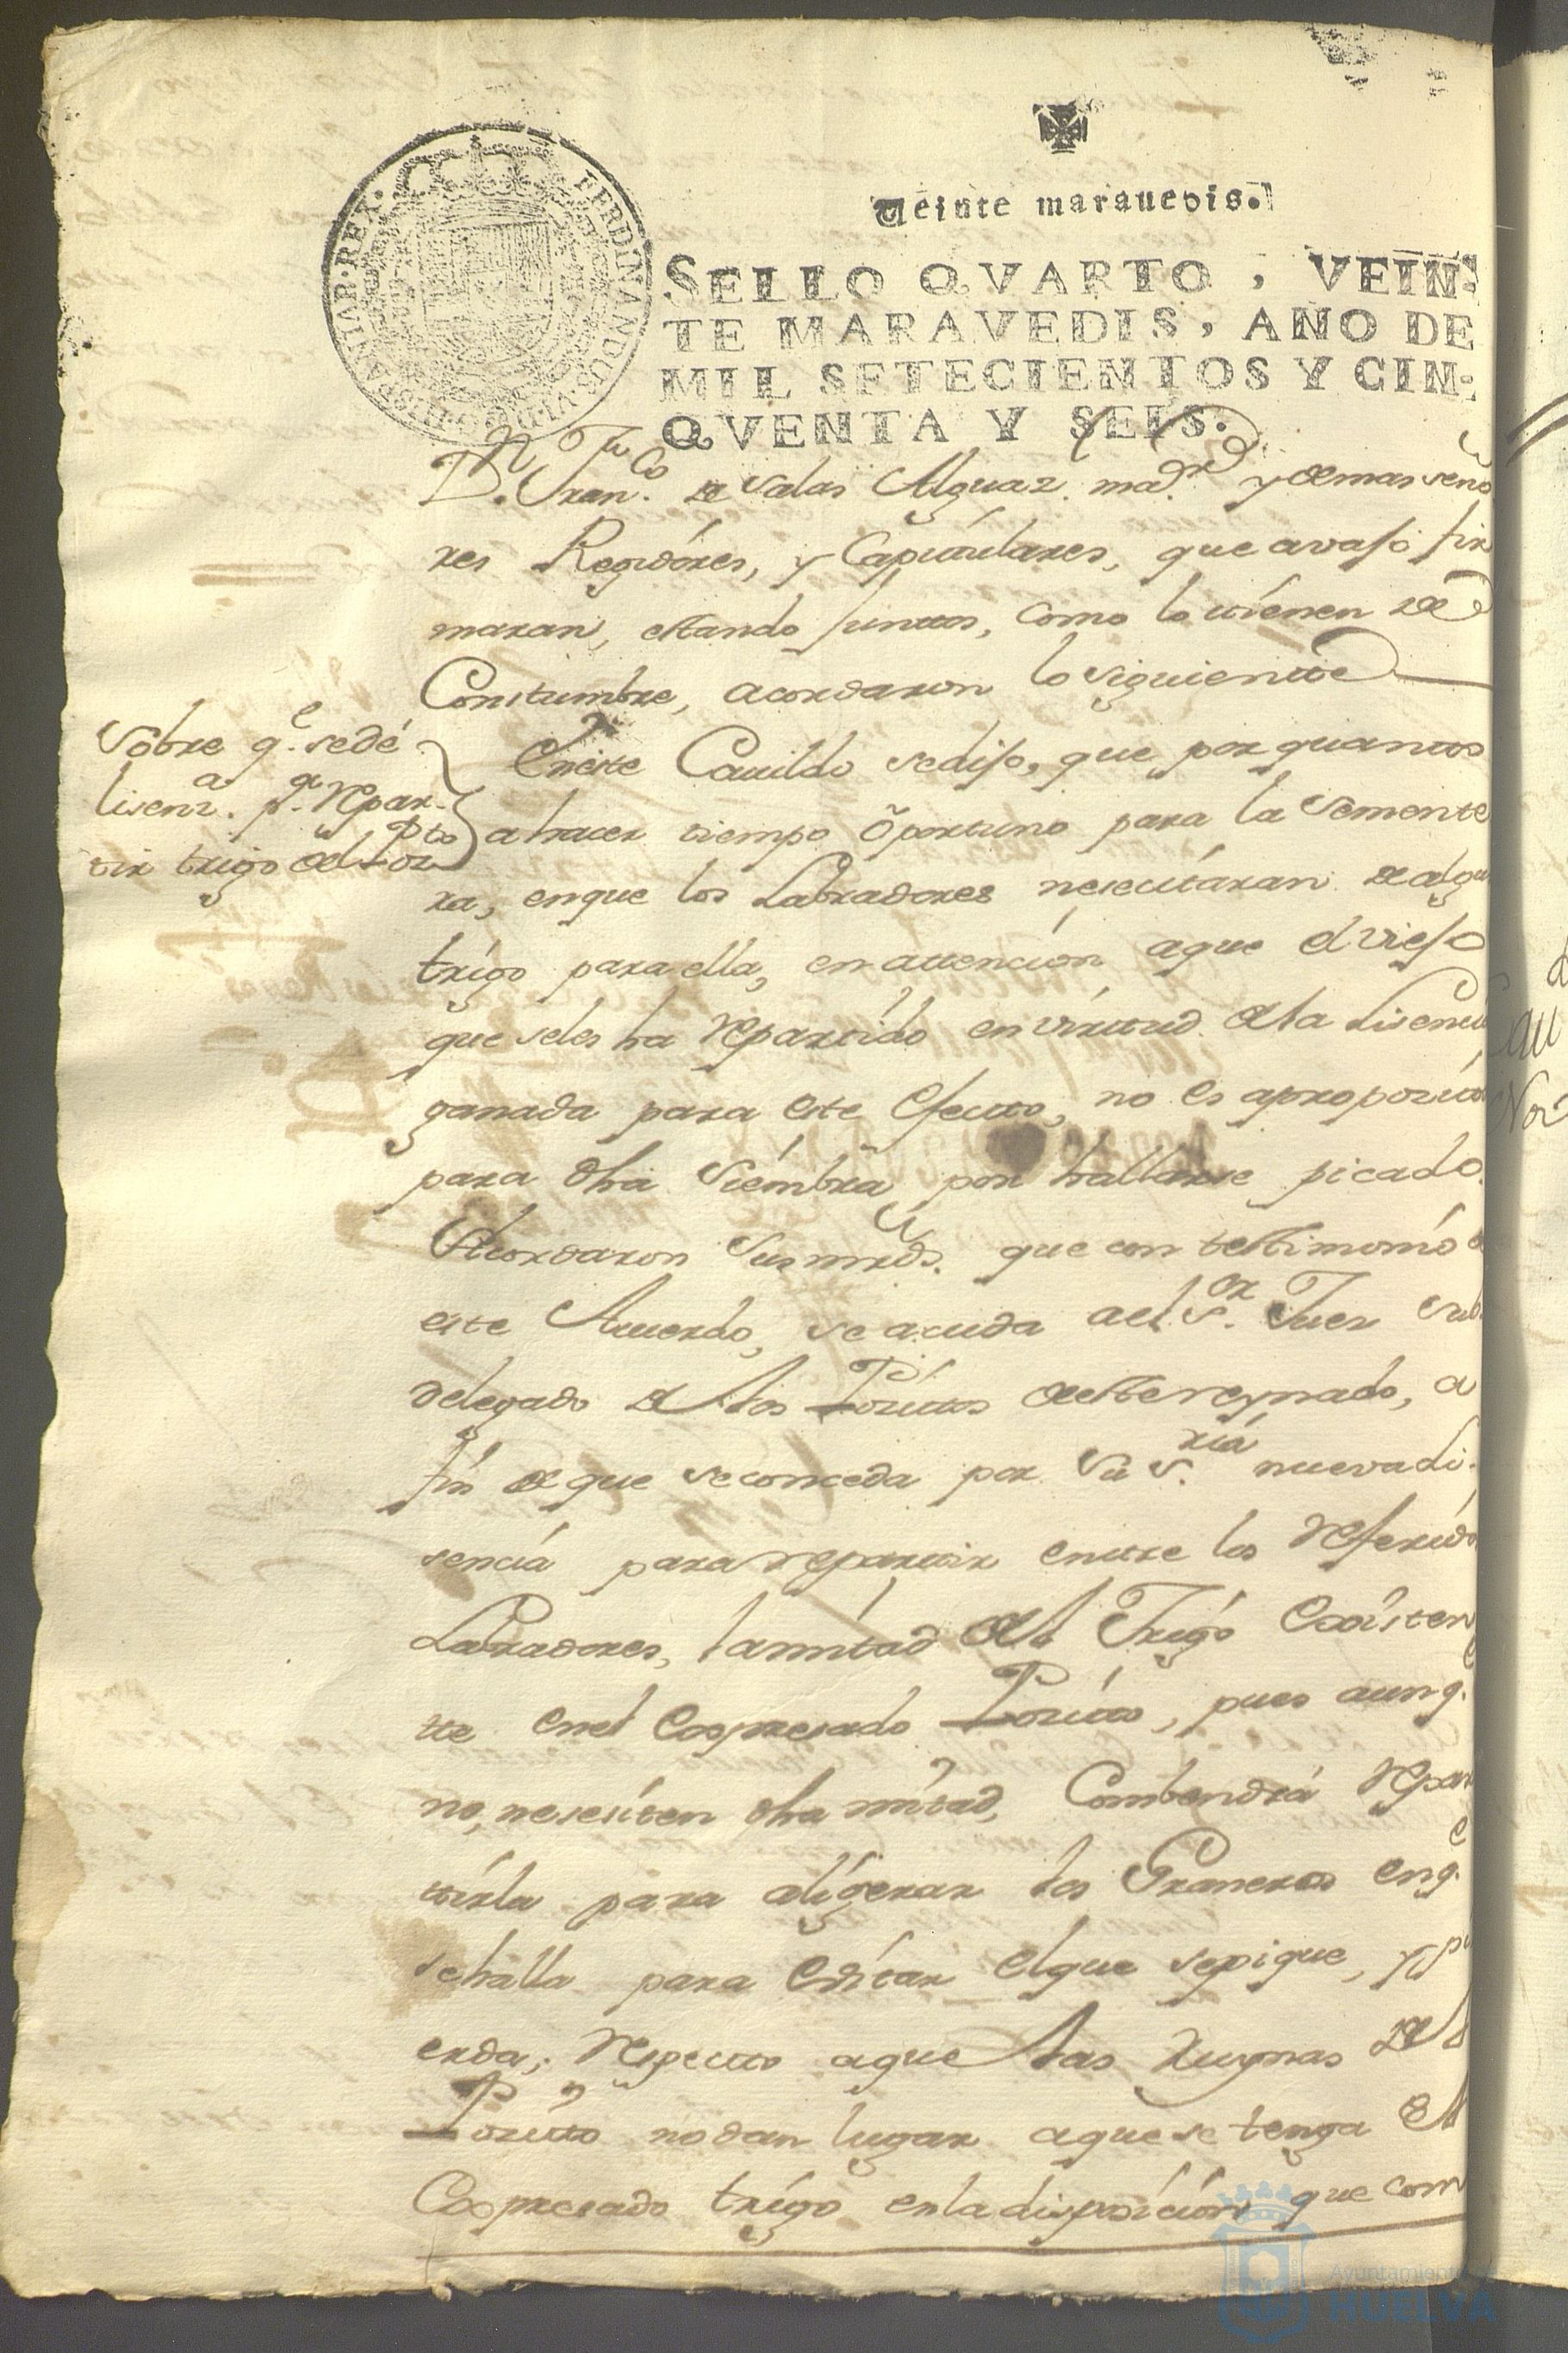 Veinte marauedis.
SELLO QVARTO, VEIN-
TE MARAVEDIS, AÑO DE
MIL SETECIENTOS Y CIN-
QVENTA Y SEIS.
FERDINANDUS·VI·D·G·HISPANIAR·REX·
Dn. Franco. de Salas Alguaz. mar. y demas seño
res Regidóres, y Capitulares, que avajo fir
maran, estando juntos, como lo tienen de
Constumbre, acordaron lo siguiente
Sobre qe. se dé
lisenza. pa. Repar-
tir trigo del Pozto
En este Cauildo se dijo, que por quanto
a hacer tiempo oportuno para la Semente
ra, en que los Labradores nesesitáran de algu
trígo para ella, en attencíon a que el viejo
que se les ha Repartído en vírtud de la Lisencia
ganada para este Efecto, no es aproposito
para dha Siémbra por hallarse picado.
Acordaron Sus mrds. que con testimonío d
este Acuerdo, se acuda a el Sor. Juez Sub
delegado de los Pósitos de este reynado, a
fin de que se conceda por Su Sría. nueva Li-
sencía para repartir entre los Referído
Labradores, la mitad del Trígo Exísten
te en el Expresado Pósito, pues aunqe.
no, nesesíten dha mítad, Combendrá Repar
tírla para alígerar los Graneros en qe.
se halla para Evítar el que se pique, y pi
erda; Respecto a que las Ruynas del
Pósito no dan lugar a que se tenga El
Expresado trígo en la disposición que com
Ayuntamiento
HUELVA